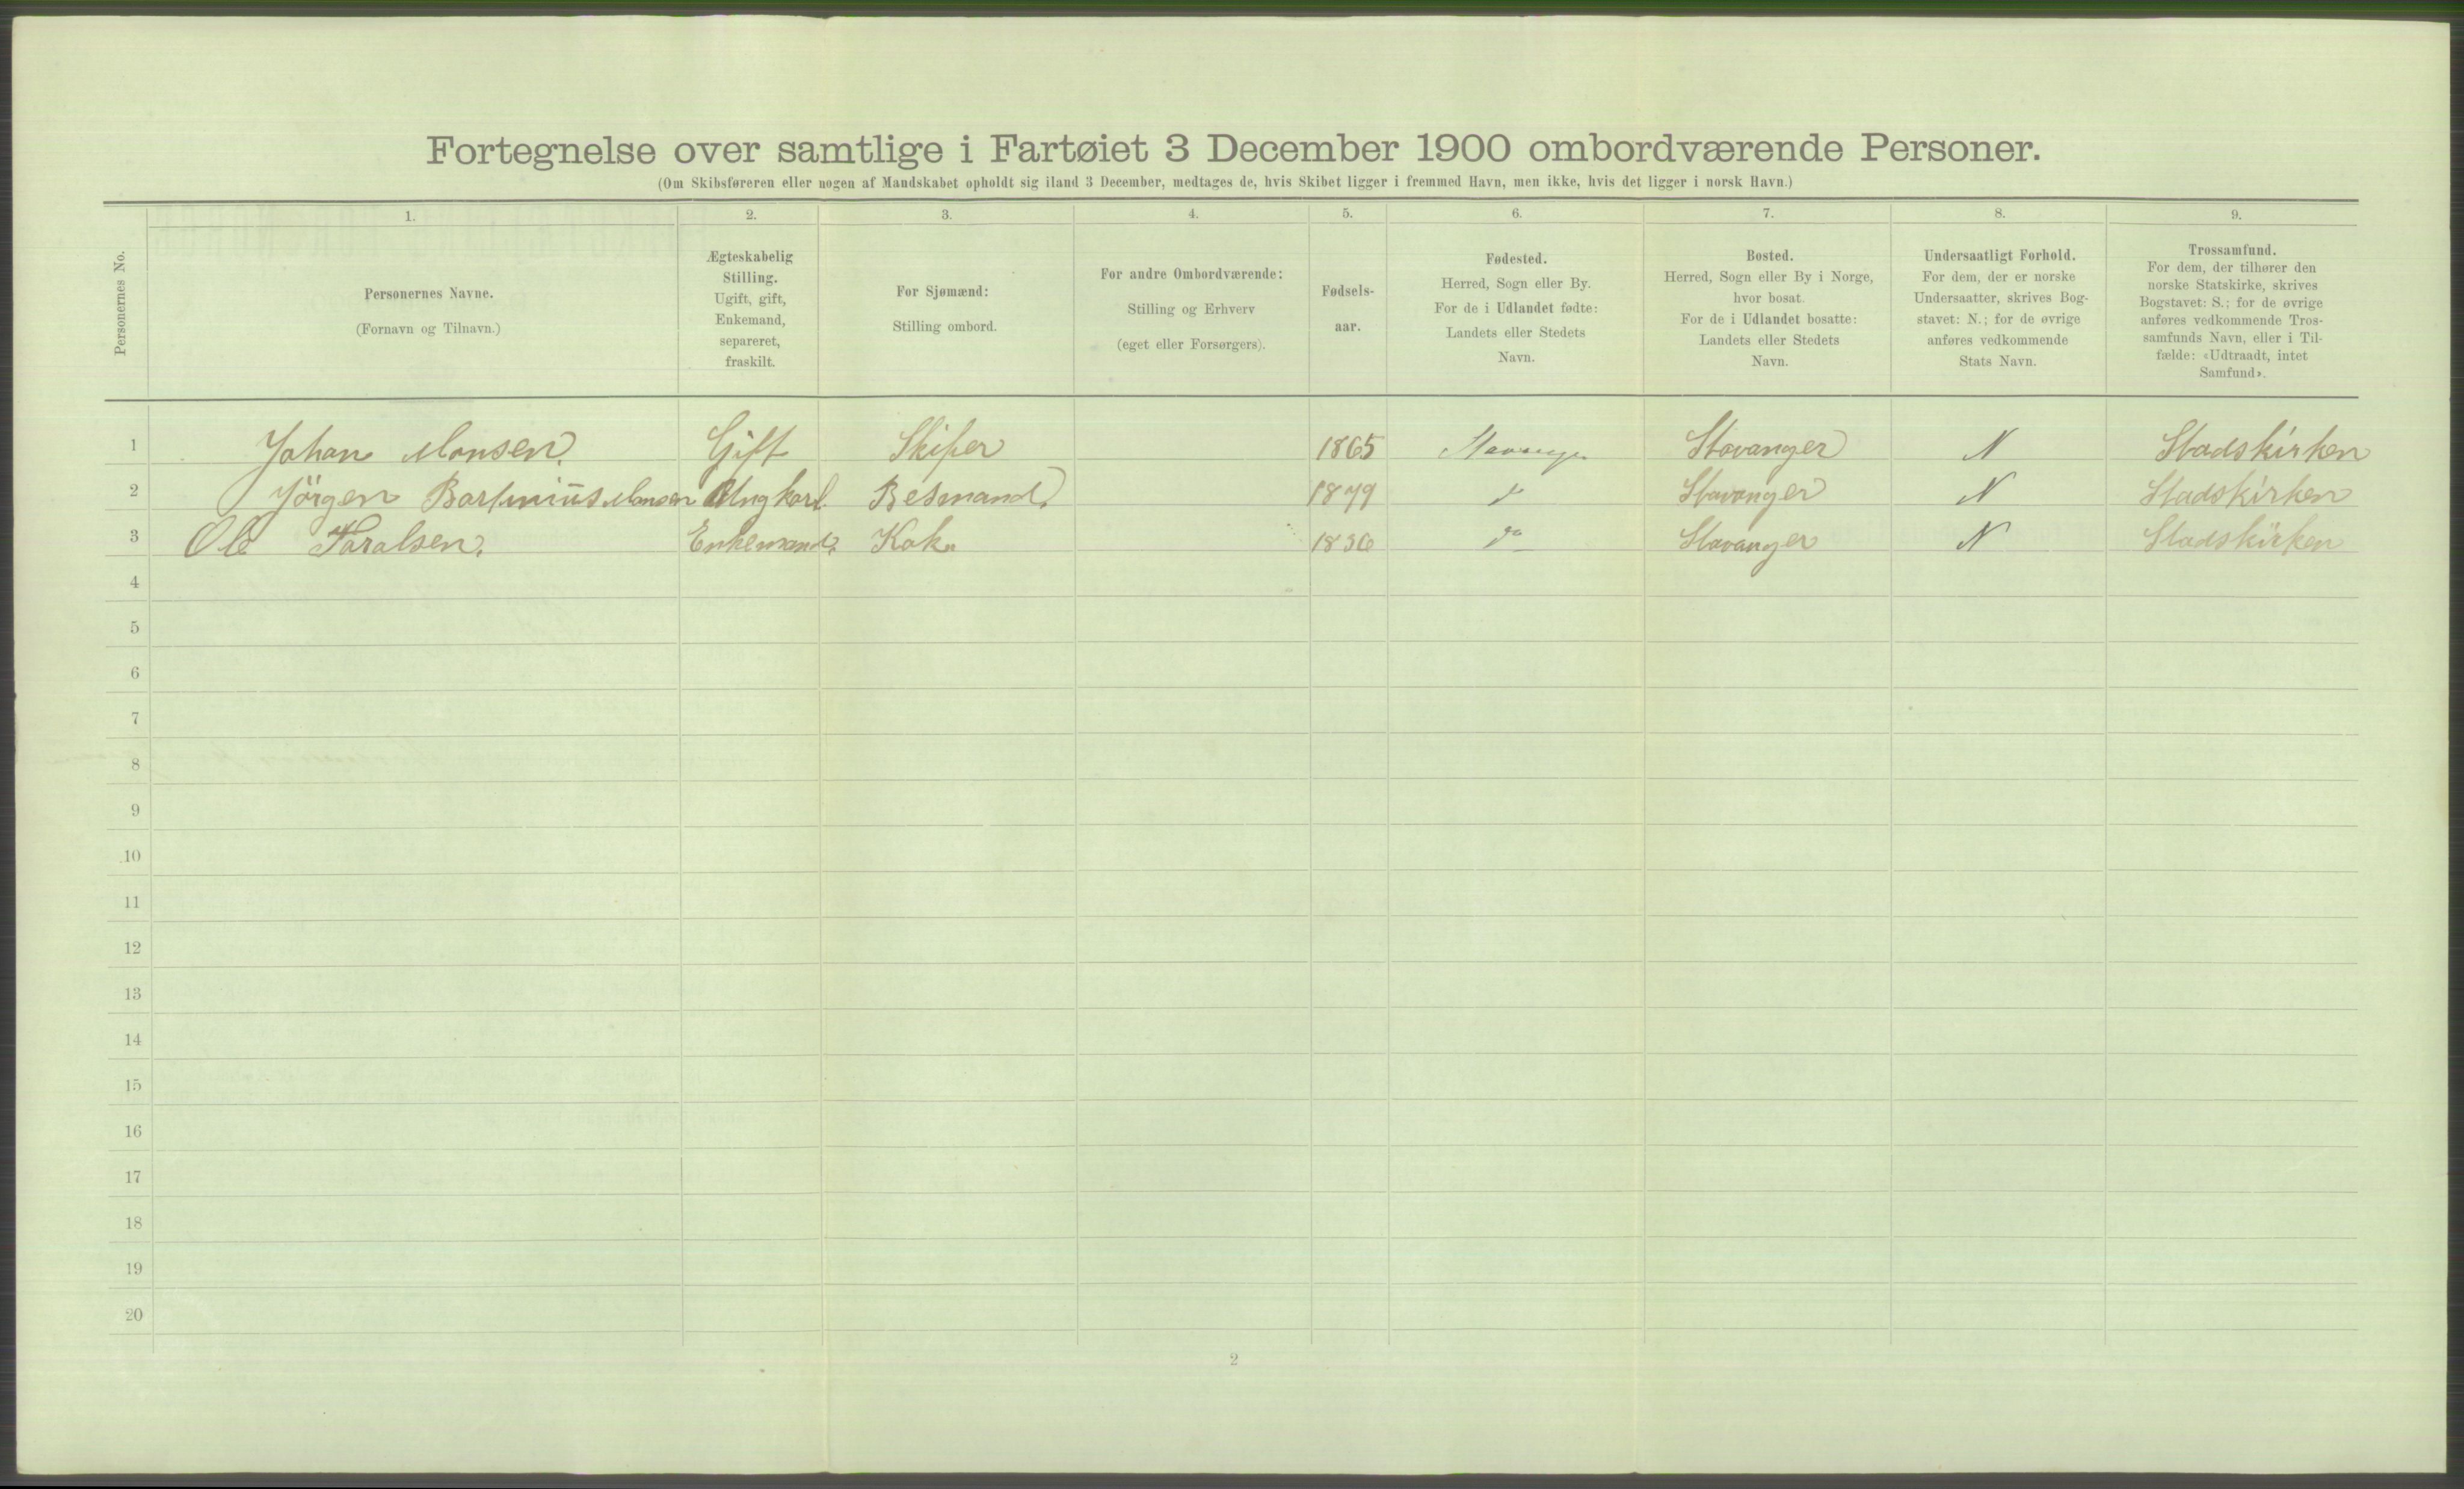 Fortegnelse over samtlige i Fartøiet 3 December 1900 ombordværende Personer.
(Om Skibsføreren eller nogen af Mandskabet opholdt sig iland 3 December, medtages de, hvis Skibet ligger i fremmed Havn, men ikke, hvis det ligger i norsk Havn.)
1. 2. 3. 4. 5. 6. 7. 8. 9.
Personernes No.
Personernes Navne.
(Fornavn og Tilnavn.)
Ægteskabelig
Stilling.
Ugift, gift,
Enkemand,
separeret,
fraskilt.
For Sjømænd:
Stilling ombord.
For andre Ombordværende:
Stilling og Erhverv
(eget eller Forsørgers).
Fødsels-
aar.
Fødested.
Herred, Sogn eller By.
For de i Udlandet fødte:
Landets eller Stedets
Navn.
Bosted.
Herred, Sogn eller By i Norge,
hvor bosat.
For de i Udlandet bosatte:
Landets eller Stedets
Navn.
Undersaatligt Forhold.
For dem, der er norske
Undersaatter, skrives Bog-
stavet: N.; for de øvrige
anføres vedkommende
Stats Navn.
Trossamfund.
For dem, der tilhører den
norske Statskirke, skrives
Bogstavet: S.; for de øvrige
anføres vedkommende Tros-
samfunds Navn, eller i Til-
fælde: «Udtraadt, intet
Samfund».
1 Johan Monsen. Gift Skiper 1865 Stavanger Stavanger N Stadskirken
2 Jörgen Monsen Ungkarl. Besmand. 1879 Stavanger N Stadskirken
3 Ole Enkemand. Kok 1836 do Stavanger N Stadskirken
4
5
6
7
8
9
10
11
12
13
14
15
16
17
18
19
20
2